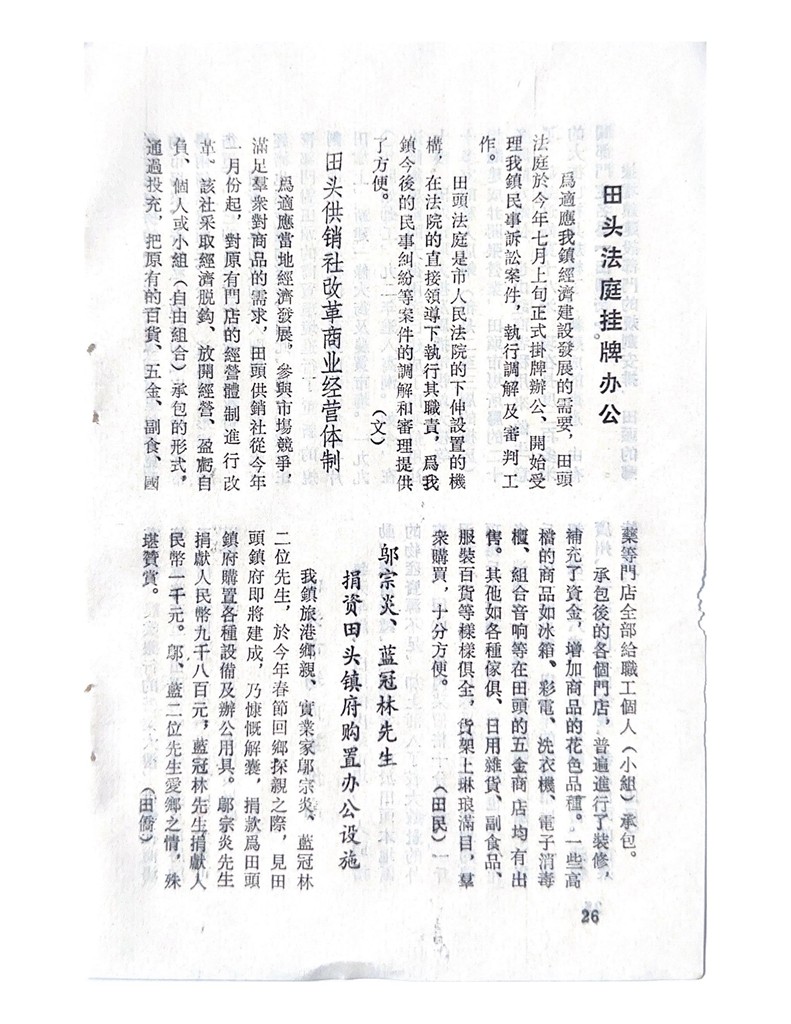 田头法庭挂牌办公
爲適應我鎮經濟建設發展的需要，田頭
法庭於今年七月上旬正式掛牌辦公、開始受
理我鎮民事訴訟案件，執行調解及審判工
作。
田頭法庭是市人民法院的下伸設置的機
構，在法院的直接領導下執行其職責，爲我
鎮今後的民事糾紛等案件的調解和審理提供
了方便。
（文）
田头供销社改革商业经营体制
爲適應當地經濟發展，參與市場競爭，
滿足羣衆對商品的需求，田頭供銷社從今年
一月份起，對原有門店的經營體制進行改
革。該社采取經濟脱鈎、放開經營、盈虧自
負、個人或小組（自由組合）承包的形式，
通過投充，把原有的百貨、五金、副食、國
藥等門店全部給職工個人（小組）承包。
承包後的各個門店，普遍進行了裝修，
補充了資金，增加商品的花色品種。一些高
檔的商品如冰箱、彩電、洗衣機、電子消毒
櫃、組合音响等在田頭的五金商店均有出
售。其他如各種傢俱、日用雜貨、副食品、
服裝百貨等樣樣俱全，貨架上琳琅滿目，羣
衆購買，十分方便。
（田民）
邬宗炎、蓝冠林先生
捐资田头镇府购置办公设施
我鎮旅港鄉親、實業家鄔宗炎、藍冠林
二位先生，於今年春節回鄉探親之際，見田
頭鎮府即將建成，乃慷慨解囊，捐款爲田頭
鎮府購置各種設備及辦公用具。鄔宗炎先生
捐獻人民幣九千八百元，藍冠林先生捐獻人
民幣一千元。鄔、藍二位先生愛鄉之情，殊
堪贊賞。
（田僑）
26